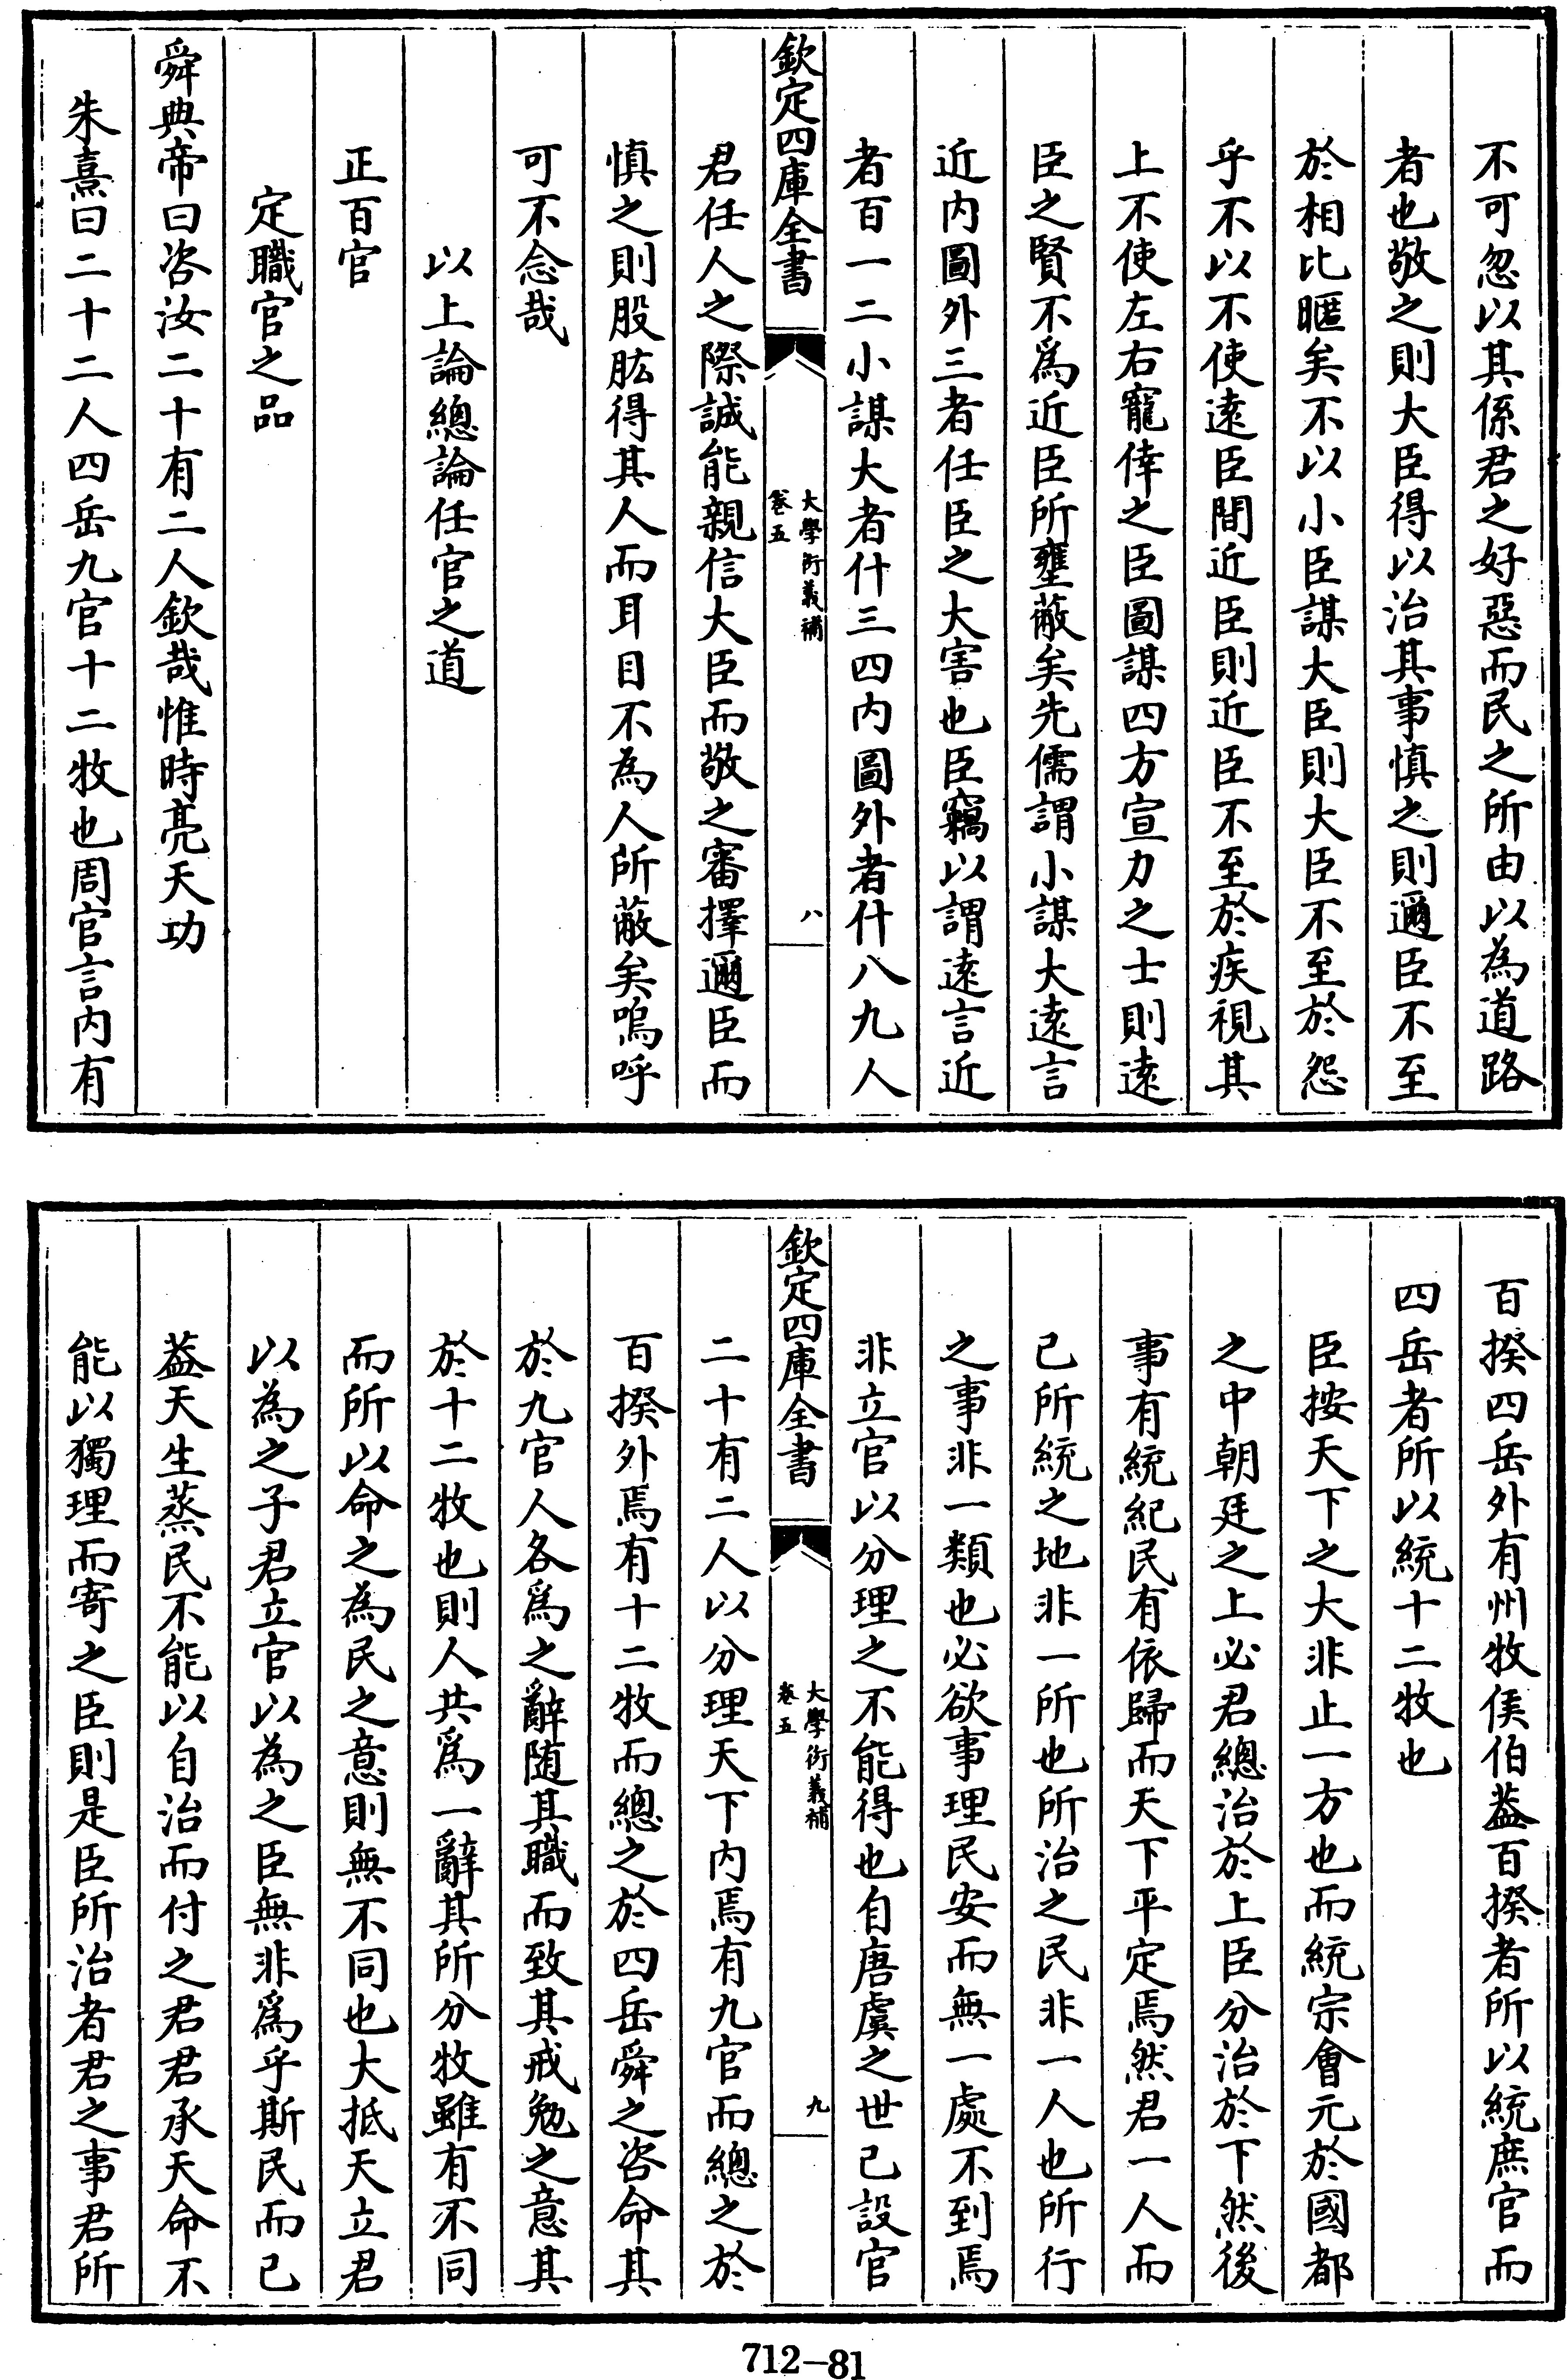 不可忽以其係君之好惡而民之所由以為道路
者也敬之則大臣得以治其事慎之則邇臣不至
於相比暱矣不以小臣謀大臣則大臣不至於怨
乎不以不使遠臣間近臣則近臣不至於疾視其
上不使左右寵倖之臣圖謀四方宣力之士則遠
臣之賢不爲近臣所壅蔽矣先儒謂小謀大遠言
近內圖外三者任臣之大害也臣竊以謂遠言近
者百一二小謀大者什三四內圖外者什八九人
欽定四庫全書
大學衍義補
卷五
八
君任人之際誠能親信大臣而敬之審擇邇臣而
慎之則股肱得其人而耳目不為人所蔽矣嗚呼
可不念哉
以上論總論任官之道
正百官
定職官之品
舜典帝曰咨汝二十有二人欽哉惟時亮天功
朱熹曰二十二人四岳九官十二牧也周官言內有
百揆四岳外有州牧侯伯葢百揆者所以統庶官而
四岳者所以統十二牧也
臣按天下之大非止一方也而統宗會元於國都
之中朝廷之上必君總治於上臣分治於下然後
事有統紀民有依歸而天下平定焉然君一人而
已所統之地非一所也所治之民非一人也所行
之事非一類也必欲事理民安而無一處不到焉
非立官以分理之不能得也自唐虞之世已設官
欽定四庫全書
大學衍義補
卷五
九
二十有二人以分理天下內焉有九官而總之於
百揆外焉有十二牧而總之於四岳舜之咨命其
於九官人各爲之辭随其職而致其戒勉之意其
於十二牧也則人共爲一辭其所分牧雖有不同
而所以命之為民之意則無不同也大抵天立君
以為之子君立官以為之臣無非爲乎斯民而已
葢天生蒸民不能以自治而付之君君承天命不
能以獨理而寄之臣則是臣所治者君之事君所
712-81